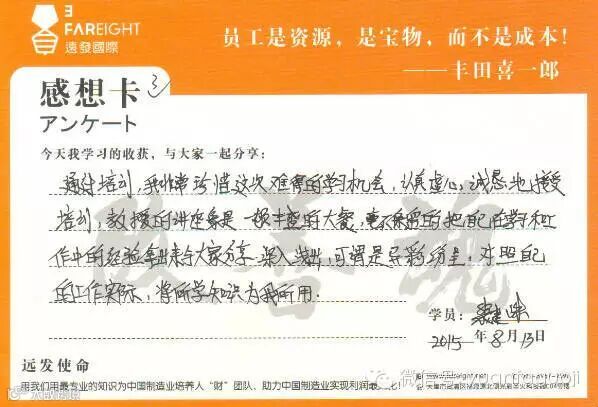 FAREIGHT
远發國際
员工是资源，是宝物，而不是成本！
——丰田喜一郎
感想卡
アンケート
今天我学习的收获，与大家一起分享：
通过培训，我非常珍惜这次难得的学习机会，认真虚心、诚恳地接受
培训，教授的讲座象是一顿丰富的大餐，毫不保留的把自己在学习和工
作中的经验拿出来给大家分享，深入浅出，可谓是异彩纷呈，对照自己
的工作实际，将所学知识为我所用。
改善魂
学员：
2015年8月13日
远发使命
用我们用最专业的知识为中国制造业培养人“财”团队、助力中国制造业实现利润最大化！